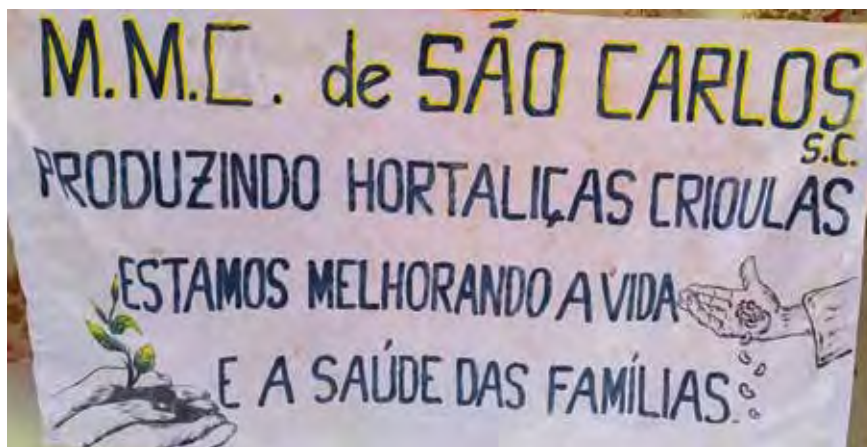 M.M.C. de SÃO CARLOS
S.C.
PRODUZINDO HORTALIÇAS CRIOULAS
ESTAMOS MELHORANDO A VIDA
E A SAÚDE DAS FAMÍLIAS.